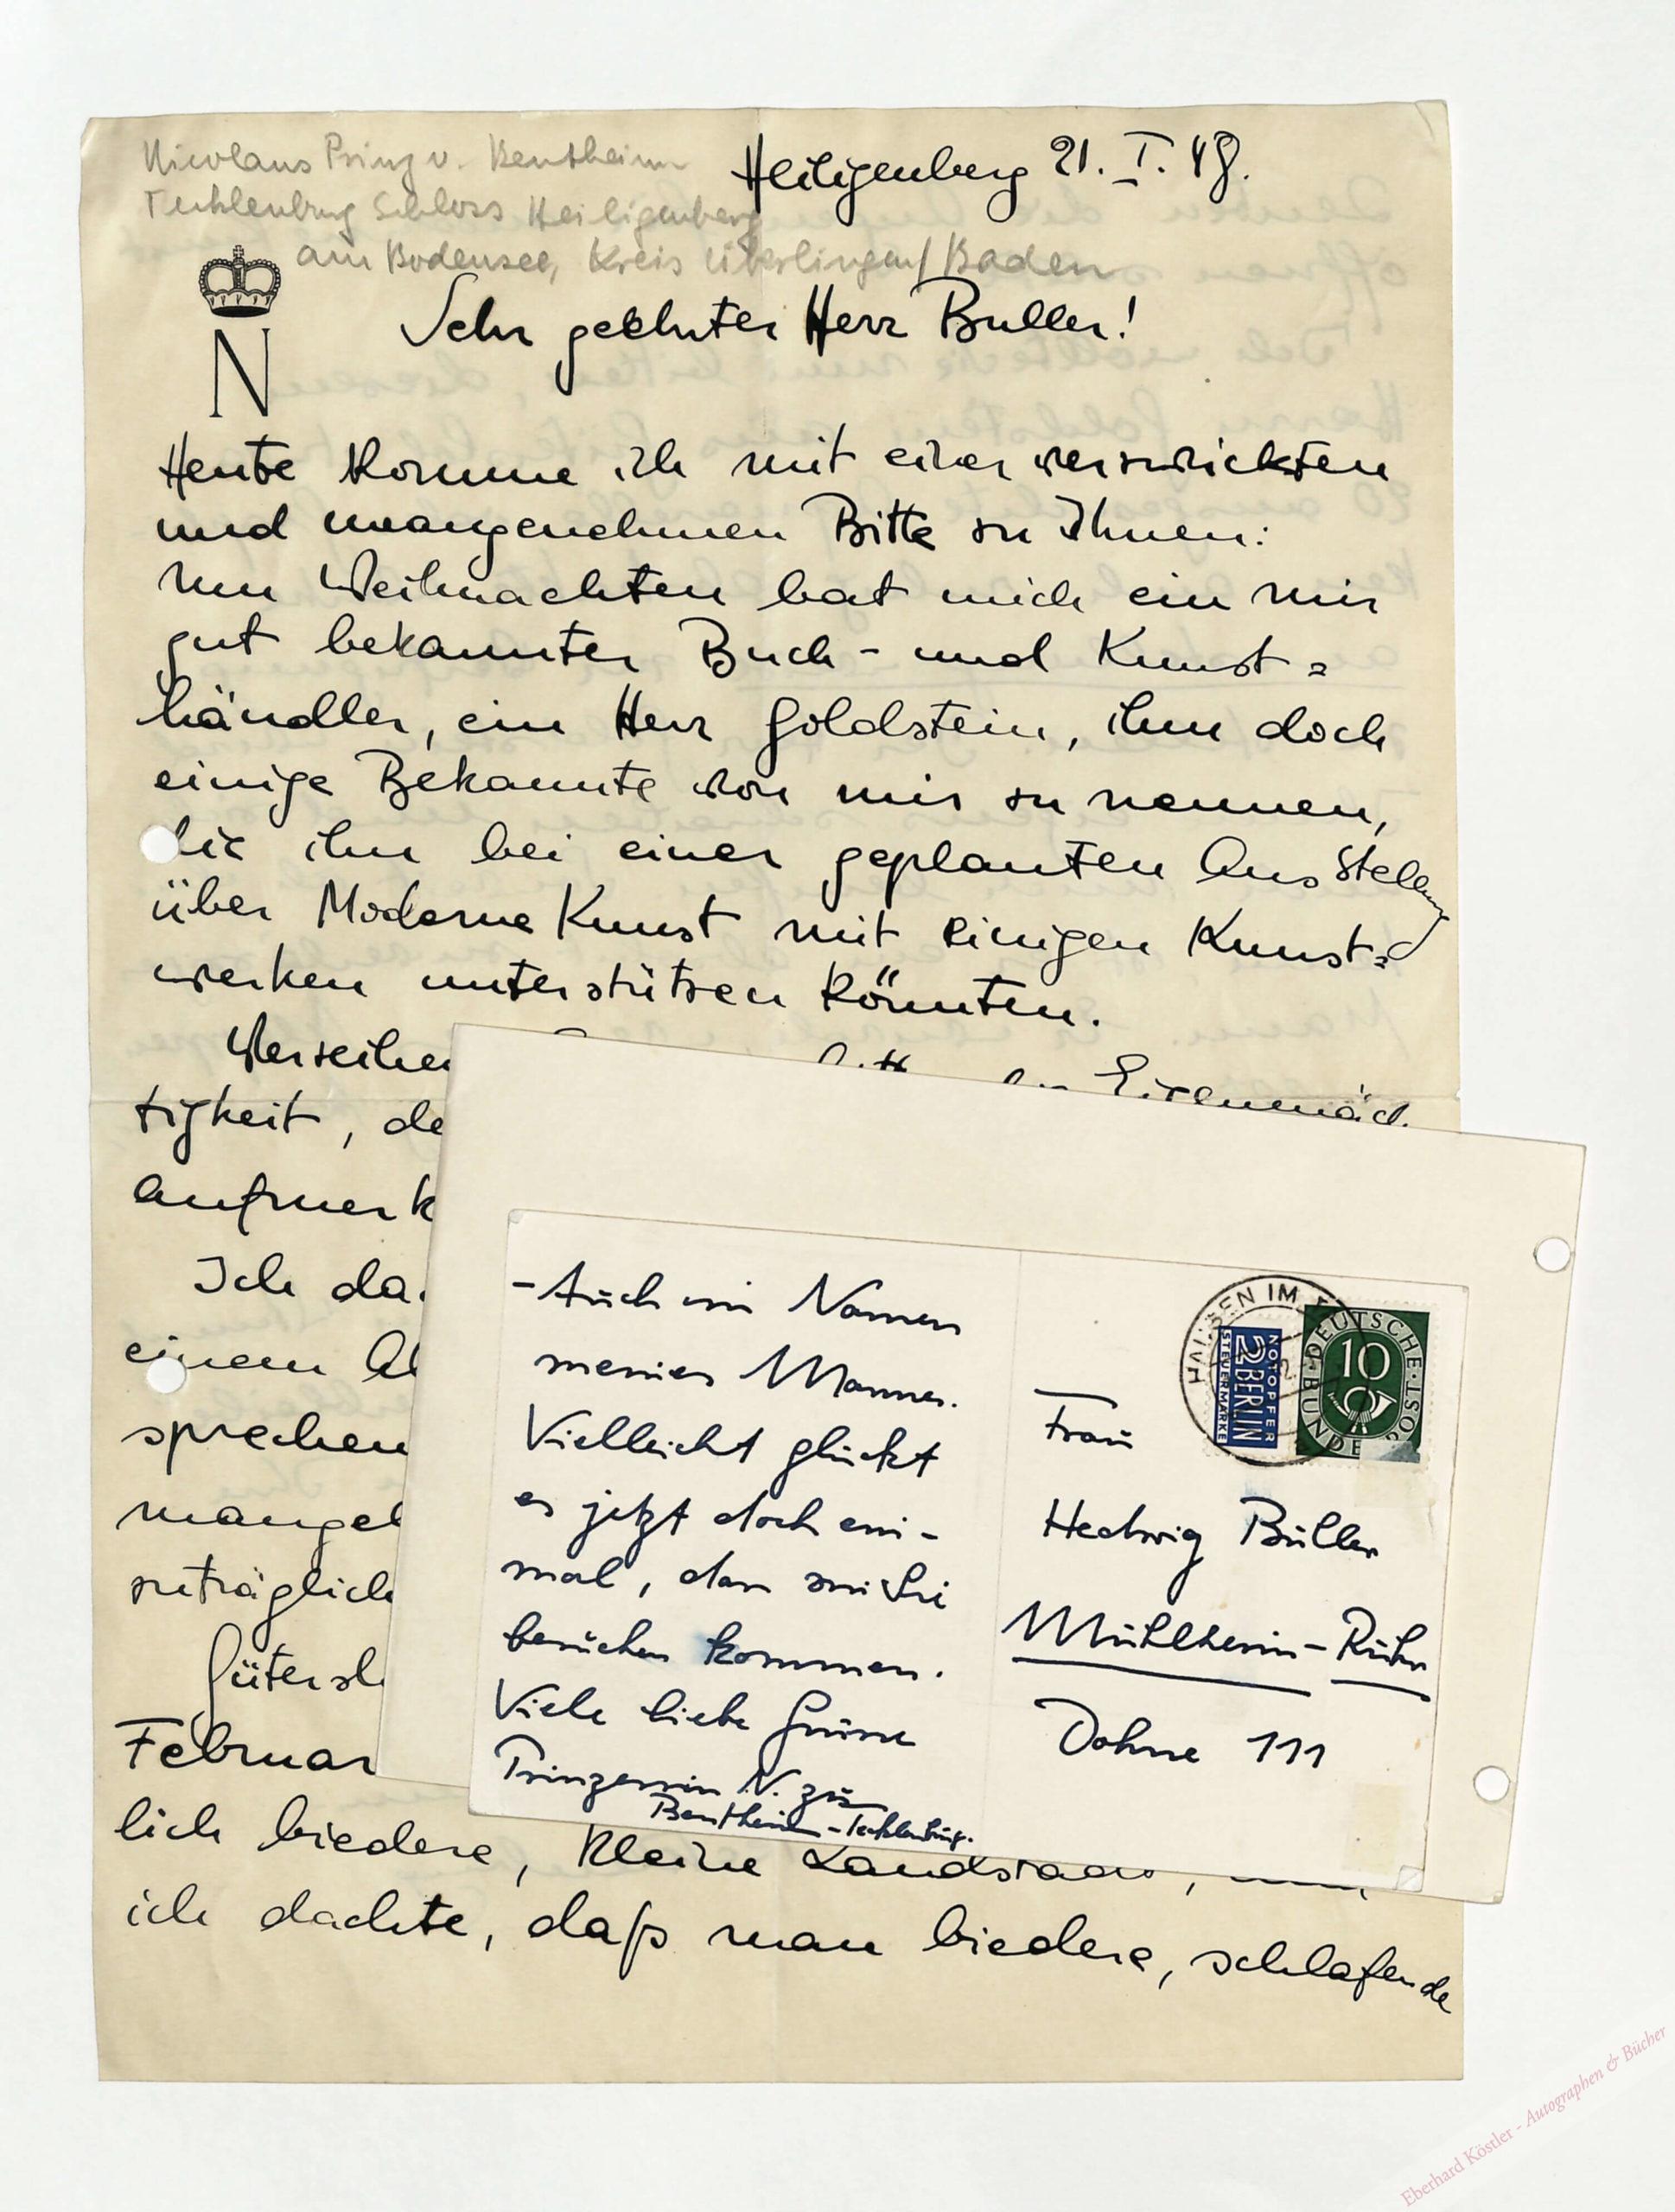 Nicolaus Prinz v. Bentheim
Tecklenburg Schloss Heiligenberg
am Bodensee, Kreis Überlingen/Baden
Heiligenberg 21. I. 48.
N
Sehr geehrter Herr Buller!
Heute komme ich mit einer verzwickten
und unangenehmen Bitte zu Ihnen:
Um Weihnachten bat mich ein mir
gut bekannter Buch- und Kunst=
händler, ein Herr Goldstein, ihm doch
einige Bekannte von mir zu nennen,
die ihn bei einer geplanten Ausstellung
über Moderne Kunst mit einigen Kunst=
werken unterstützen könnten.
Verzeihen
tigkeit, de
aufmerk
Ich da
einem
sprechen
mangel
zuträglich
Gütersl
Februar
lich biedere, kleine Landstadt,
ich dachte, daß man biedere, schlafende
- Auch im Namen
meines Mannes.
Vielleicht glückt
es jetzt doch ein-
mal, dass wir Sie
besuchen kommen.
Viele liebe Grüsse
Prinzessin N. zu
Bentheim-Tecklenburg.
HAUSEN IM
NOTOPFER
2 BERLIN
STEUERMARKE
DEUTSCHE BUNDESPOST
10
Frau
Hedwig Büller
Mühlheim-Ruhr
Dohne 111
Eberhard Köstler - Autographen & Bücher